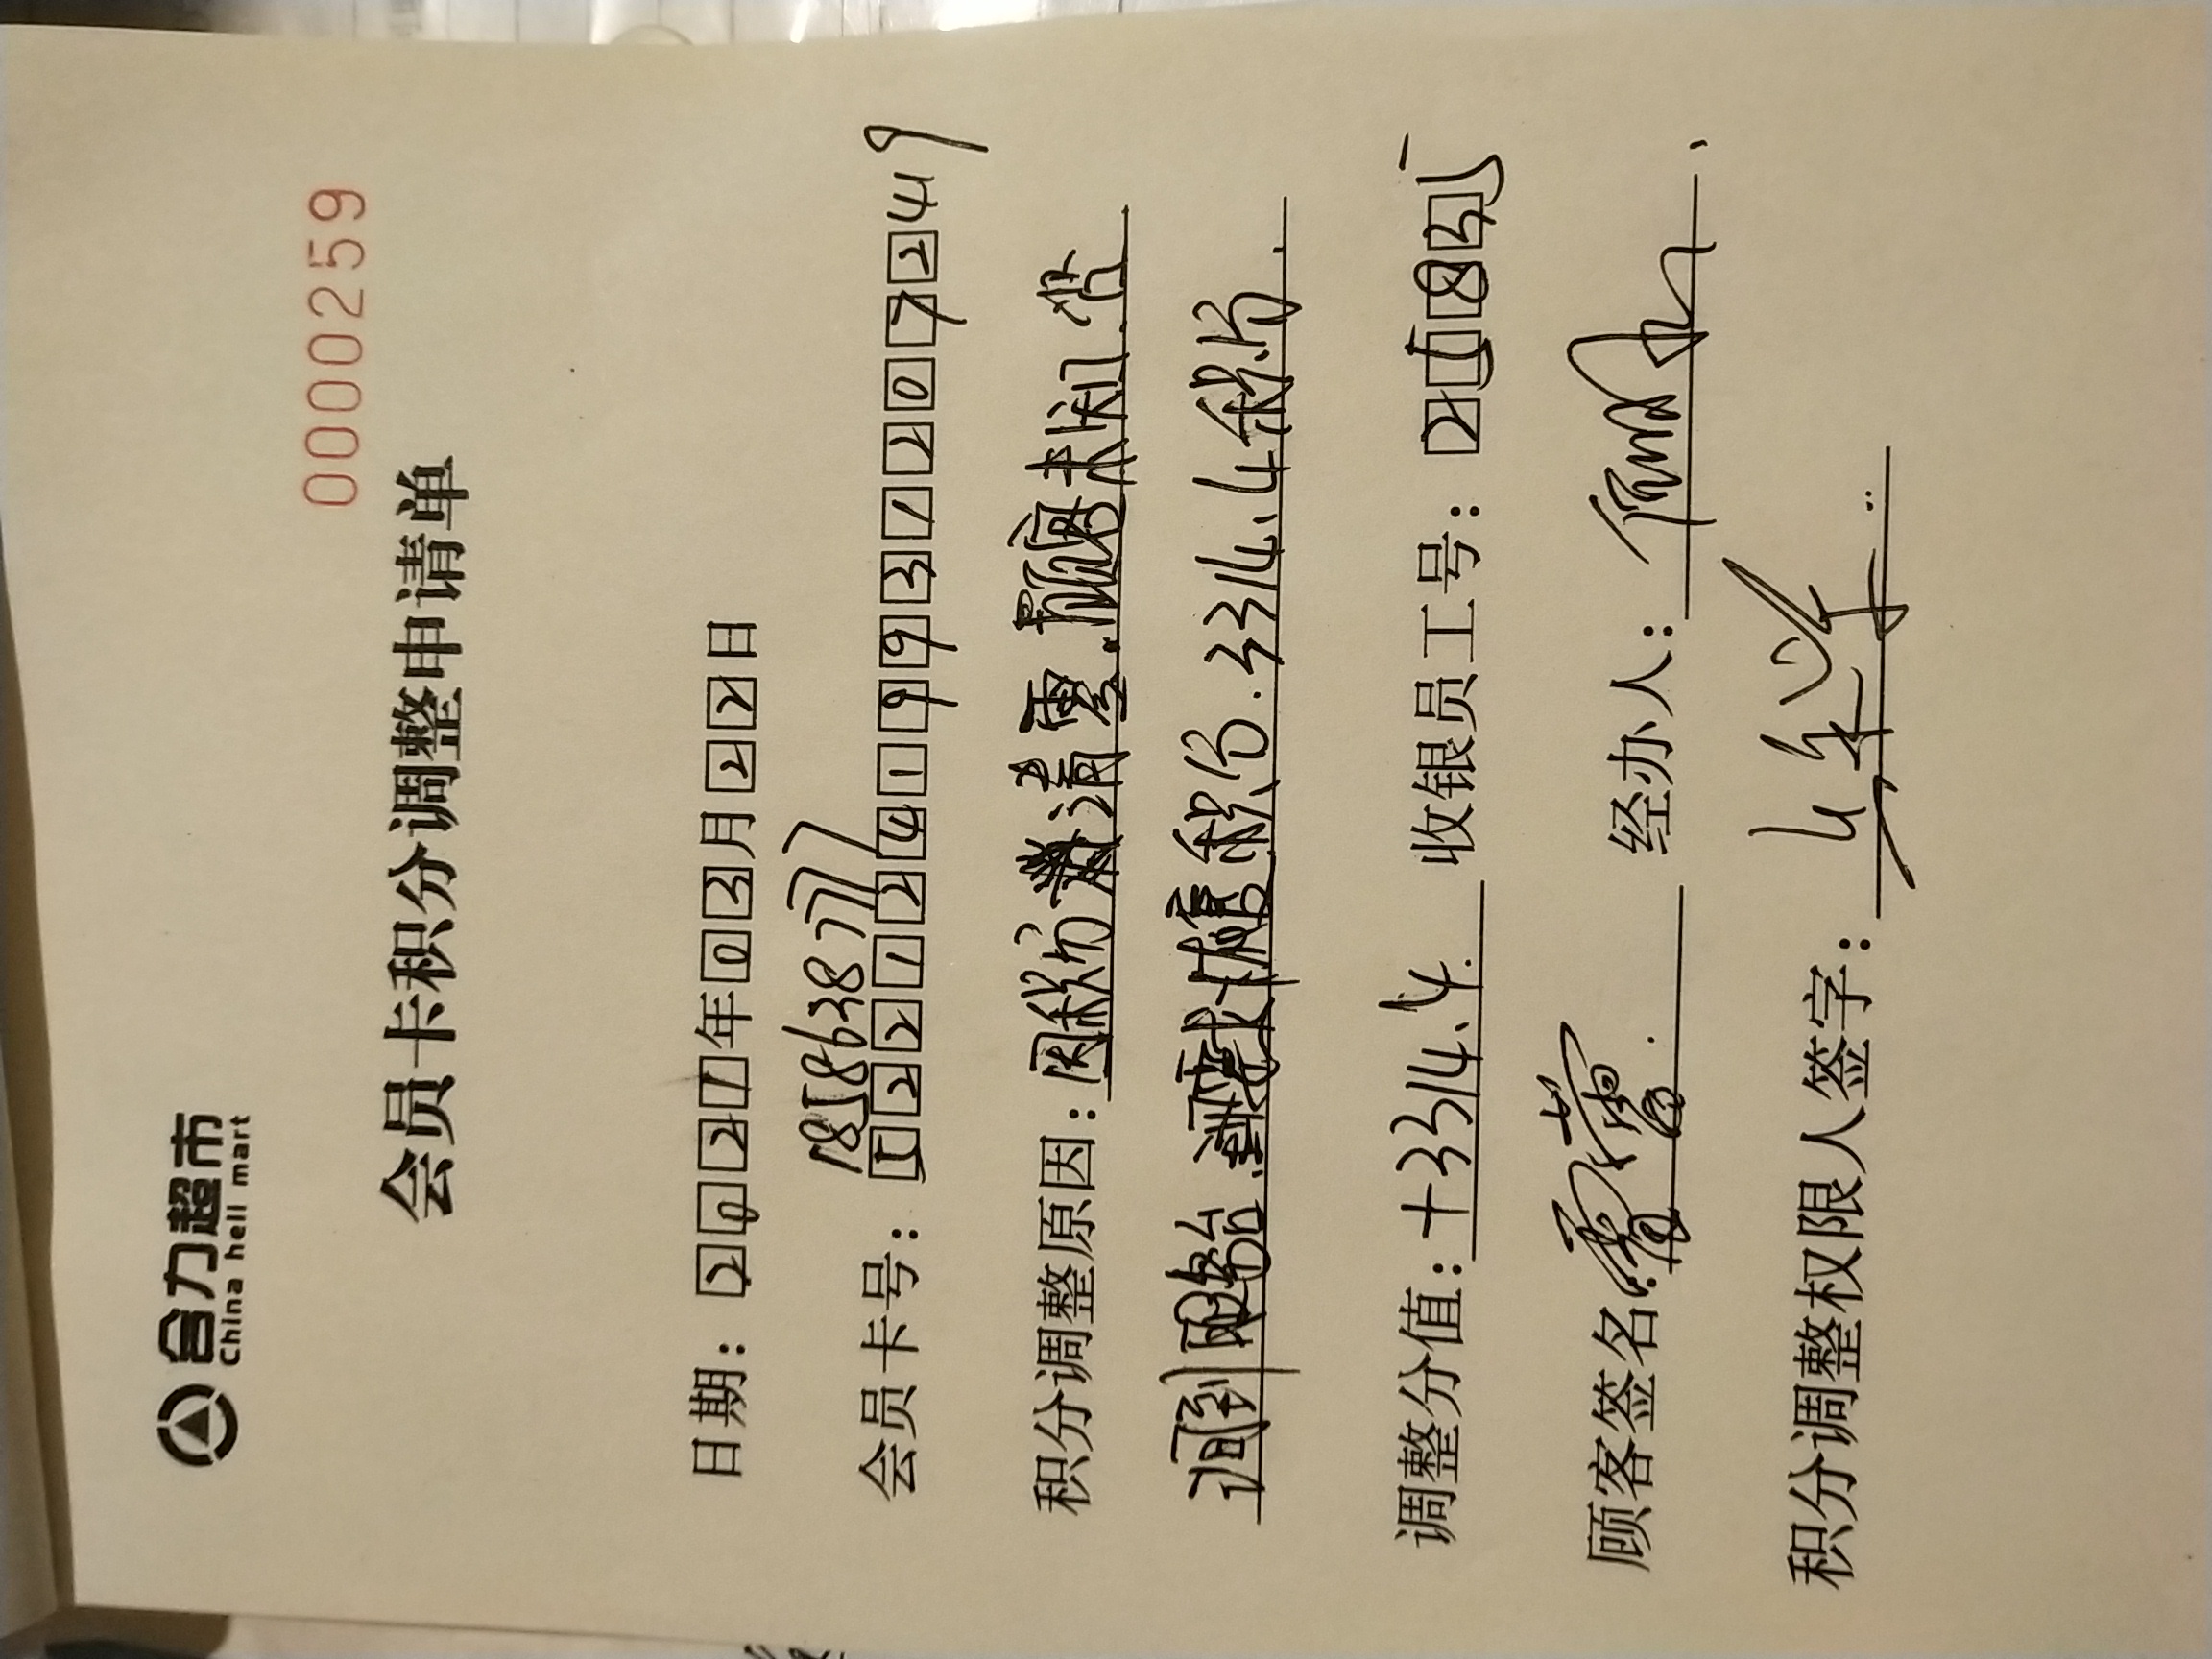 合力超市
China hell mart
0000259
会员卡积分调整申请单
日期：2021年03月22日
18586387777
会员卡号：52212419931207249
积分调整原因：因积分清零.顾客未知.当
调到 短信积分.3314.4积分.
调整分值：+3314.4. 收银员工号：25835
顾客签名： 经办人：
积分调整权限人签字：